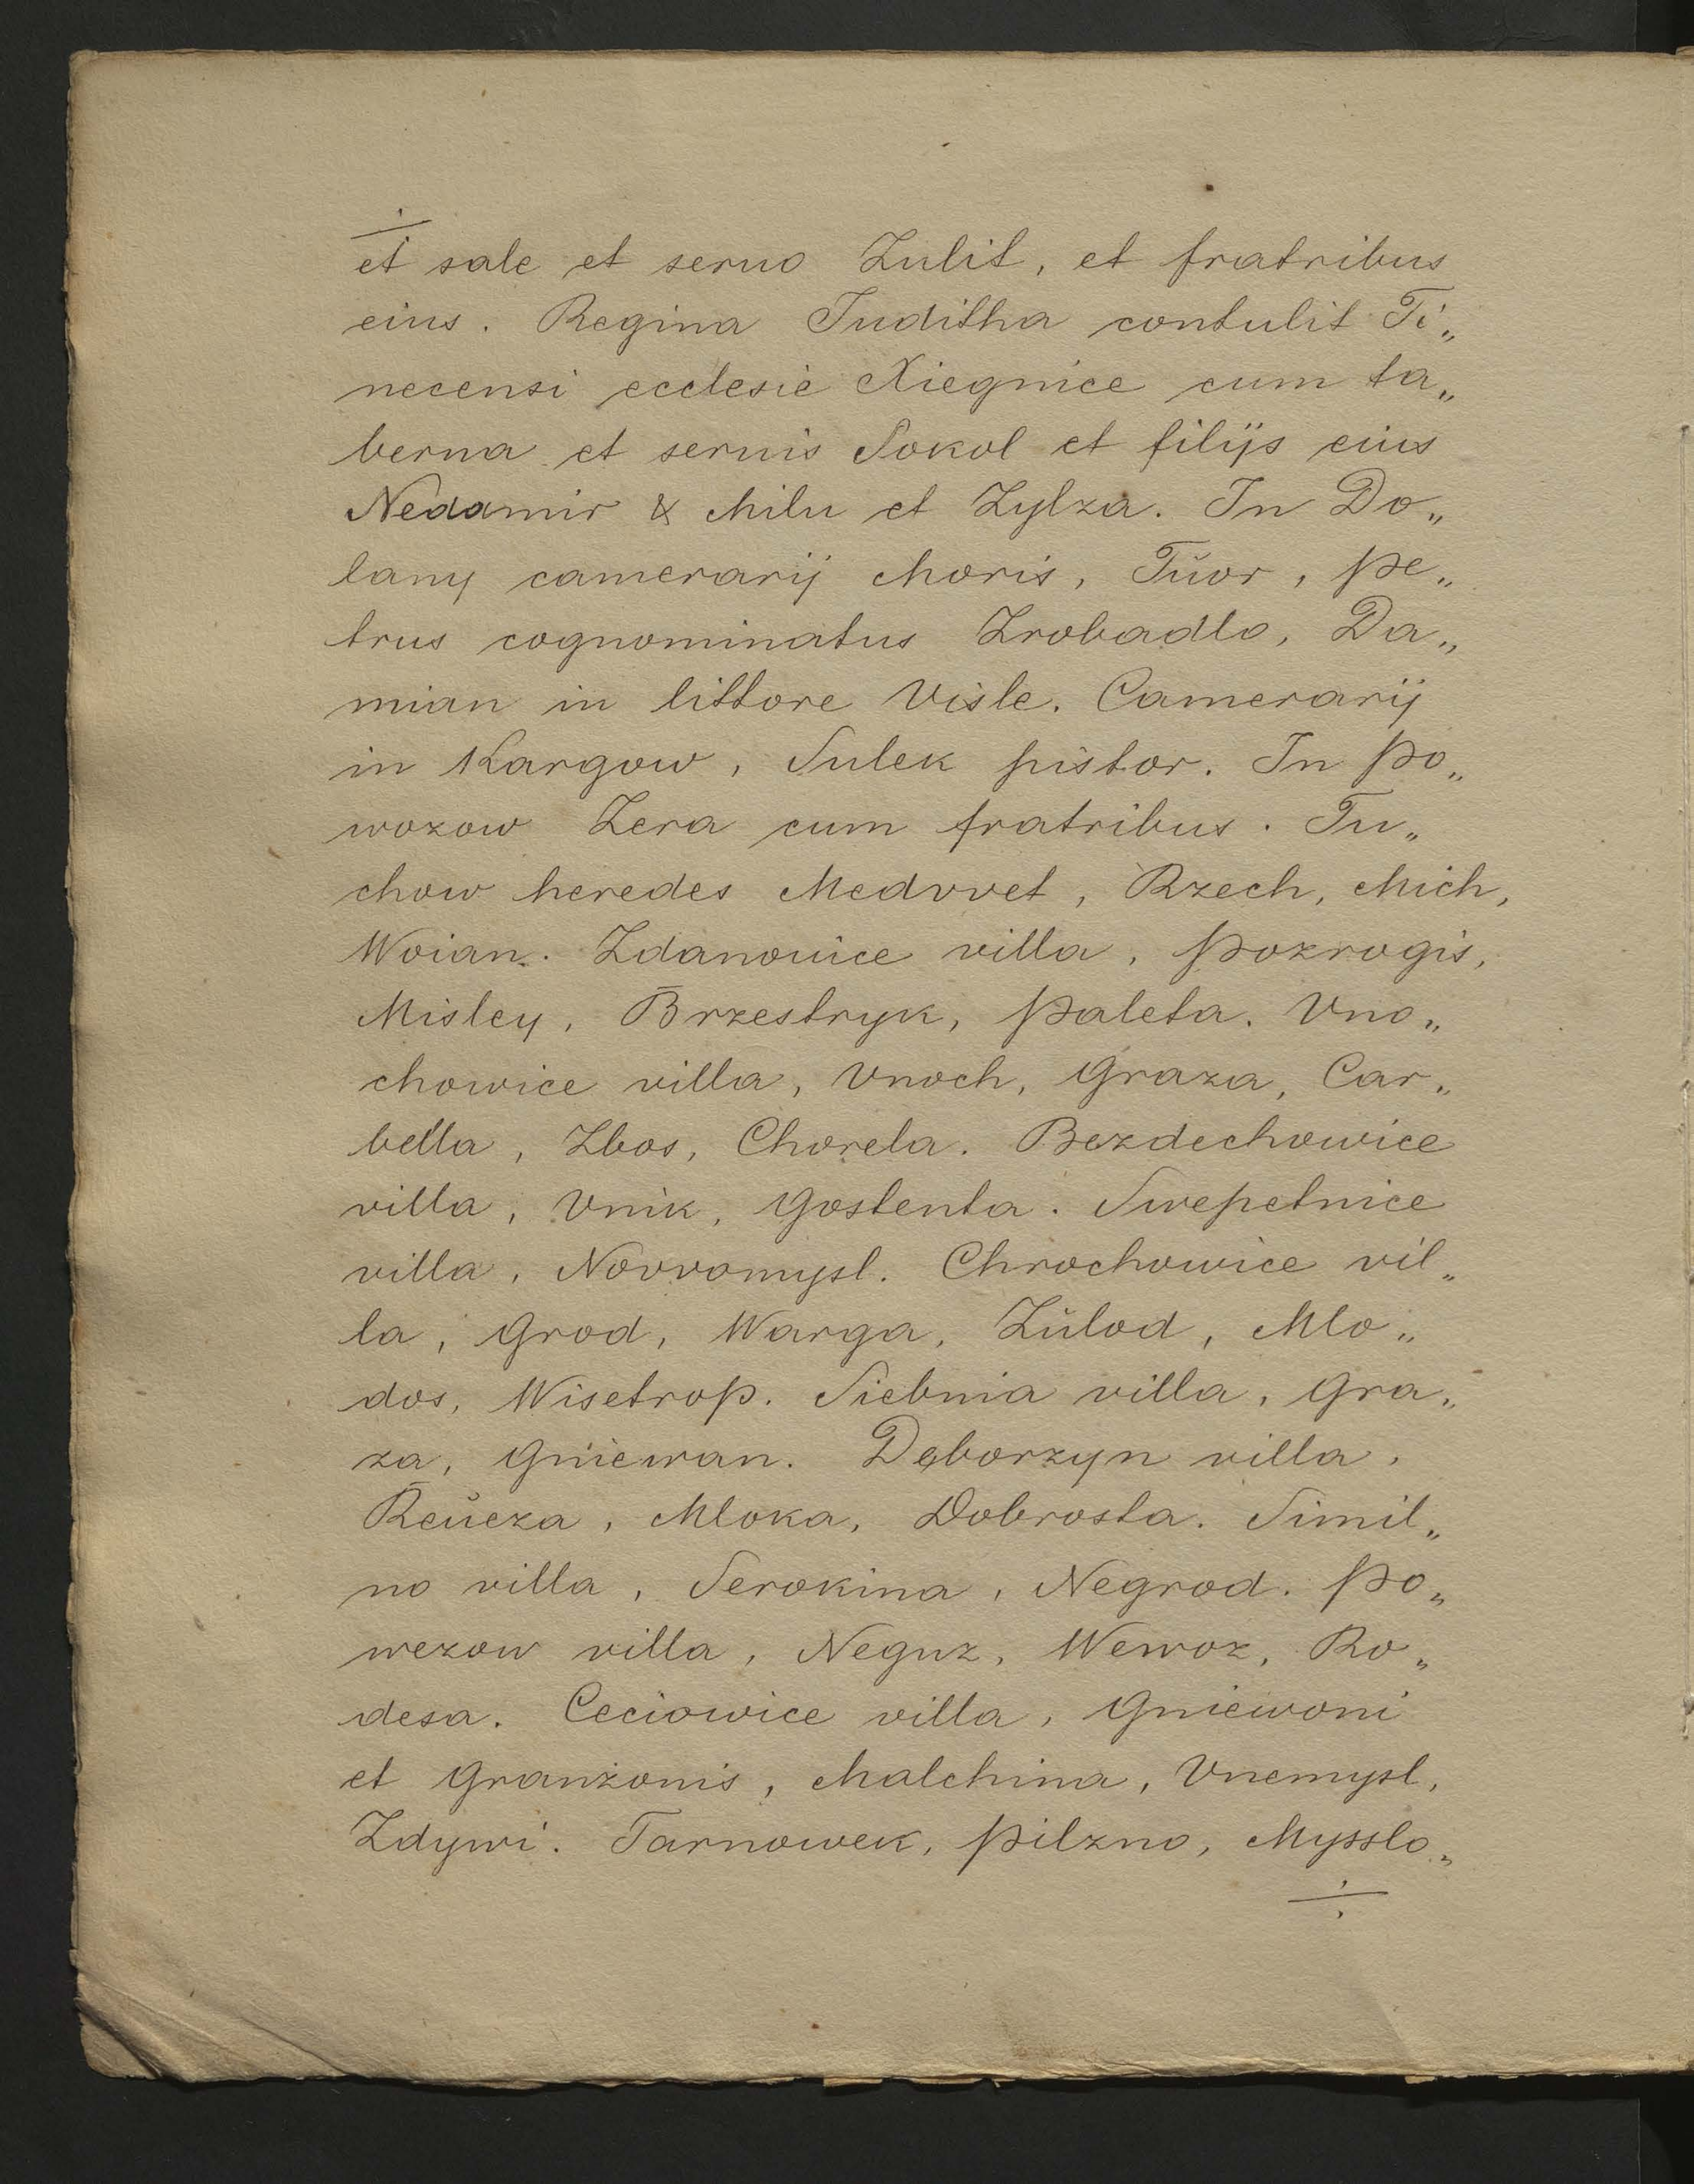 et sale et seruo Zulit, et fratribus
eius. Regina Juditha contulit Ti„
necensi ecclesie Xiegnice cum ta„
berna et seruis Sokol et filijs eius
Nedamir & Milu et Zylza. In Do„
lany camerarij Moris, Tŭor, Pe„
trus cognominatus Zrobadlo, Da„
mian in littore Visle. Camerarij
in Kargow, Sulek pistor. In Po„
wozow Zera cum fratribus. Tu„
chow heredes Medvvet, Rzech, Mich,
Woian. Zdanouice villa, Pozrogis,
Misley, Brzestryk, Paleta. Vno„
chowice villa, Vnoch, Graza, Car„
bella, Zbos, Chorela. Bezdechowice
villa, Vnik, Gostenta. Swepetnice
villa, Novvomysl. Chrochowice vil„
la, Grod, Warga, Zŭlod, Mlo„
dos, Wisetrop. Siebnia villa, Gra„
za, Gniewan. Dęborzyn villa,
Reŭcza, Mloka, Dobrosta. Simil„
no villa, Serokina, Negrod. Po„
wezow villa, Neguz, Wewoz, Ro„
desa. Ceciowice villa, Gniewoni
et Granzonis, Malchina, Vnemysl,
Zdywi. Tarnowek, Pilzno, Mysslo„